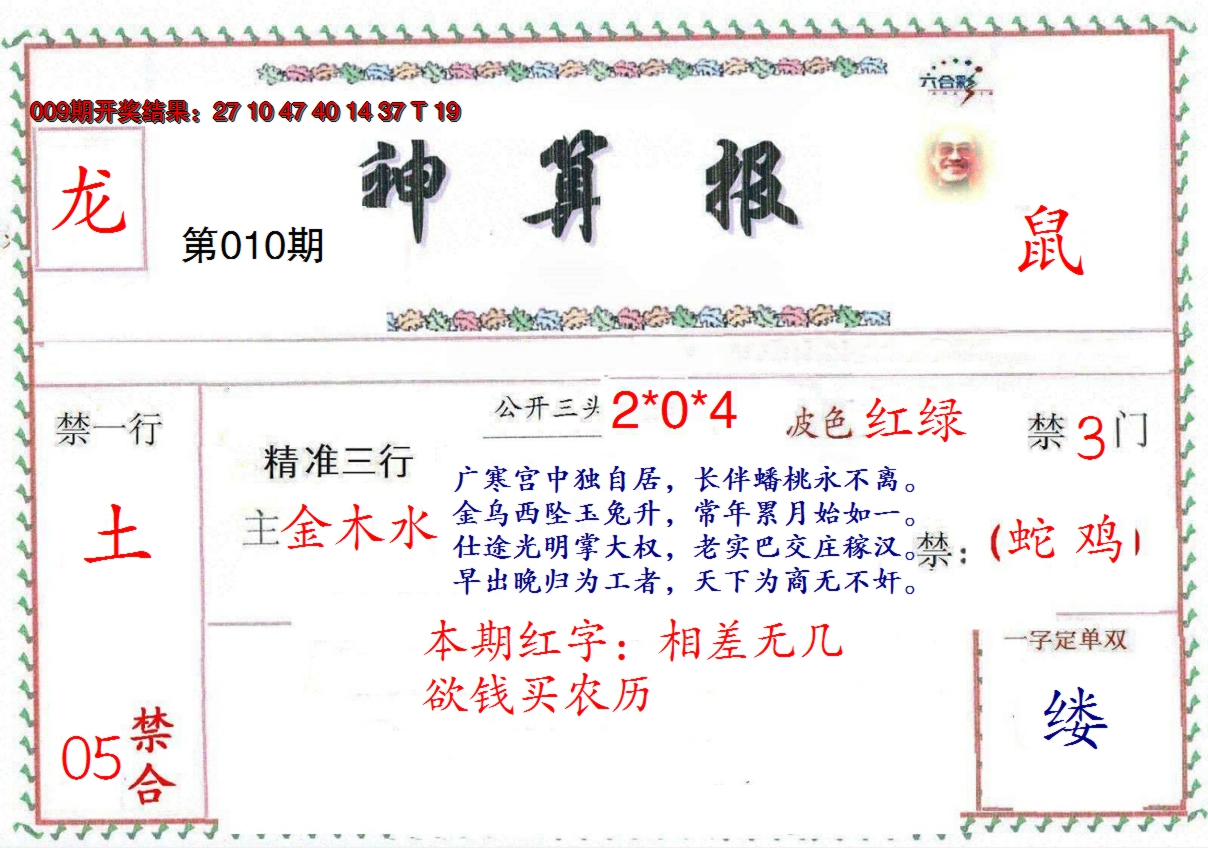 六合彩
009期开奖结果：27 10 47 40 14 37 T 19
神算报
龙
第010期
鼠
公开三头 2*0*4
波色 红绿
禁一行
禁3门
精准三行
主金木水
土
广寒宫中独自居，长伴蟠桃永不离。
金乌西坠玉兔升，常年累月始如一。
仕途光明掌大权，老实巴交庄稼汉。
早出晚归为工者，天下为商无不奸。
禁：（蛇 鸡）
本期红字：相差无几
欲钱买农历
一字定单双
缕
05禁合